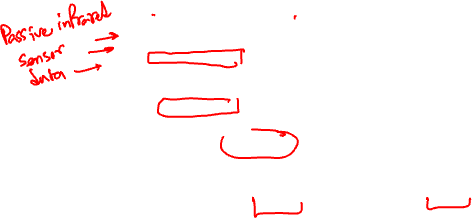 Passive infrared
sensor
data